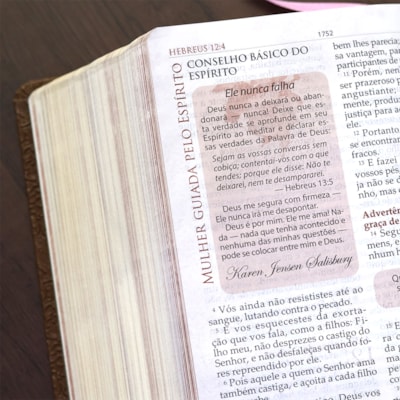 1752
HEBREUS 12:4
MULHER GUIADA PELO ESPÍRITO
CONSELHO BÁSICO DO
ESPÍRITO
Ele nunca falha
Deus nunca a deixará ou aban-
donará — nunca! Deixe que es-
ta verdade se aprofunde em seu
Espírito ao meditar e declarar es-
sas verdades da Palavra de Deus:
Sejam as vossas conversas sem
cobiça; contentai-vos com o que
tendes; porque ele disse: Não te
deixarei, nem te desampararei.
— Hebreus 13:5
Deus me segura com firmeza —
Ele nunca irá me desapontar.
Deus é por mim. Ele me ama! Na-
da — nada que tenha acontecido e
nenhuma das minhas questões —
pode se colocar entre mim e Deus.
Karen Jensen Salisbury
4 Vós ainda não resististes até ao
sangue, lutando contra o pecado.
5 E vos esquecestes da exorta-
ção que vos fala, como a filhos: Fi-
lho meu, não desprezes o castigo do
Senhor, e não desfaleças quando fo-
res repreendido por ele.
6 Pois aquele a quem o Senhor ama
também castiga, e açoita a cada filho
bem lhes parecia;
sa vantagem, para
participantes de
11 Porém, nenh
ser prazeroso p
angustiante;
mente, produ
justiça para
ele.
12 Portanto
se encontram
fracos.
13 E fazei
vossos pés,
ja não se d
nho, mas
Advertên
graça de
14 Segu
mens, e
nhum h